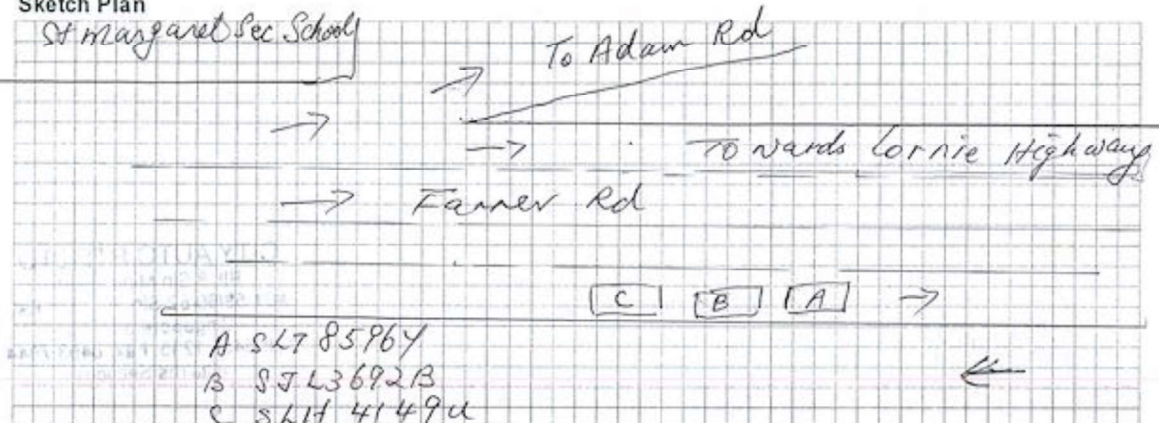 Sketch Plan
St Margaret Sec School
To Adam Rd
Towards Lornie Highway
Farrer Rd
C B A
A SLT 8596Y
B SJL3692B
C SLH 4149U